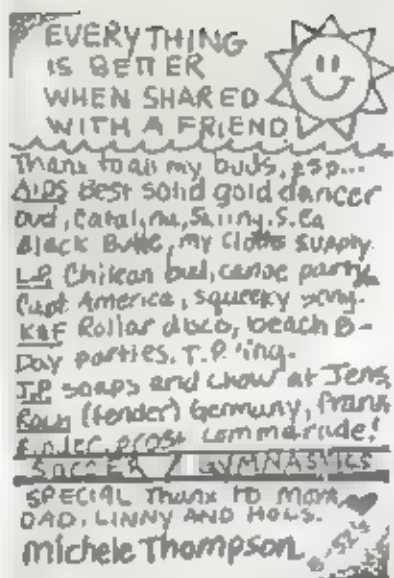 EVERYTHING
IS BETTER
WHEN SHARED
WITH A FRIEND
Thanx to all my buds, esp...
AIDS Best solid gold dancer
out, Catalina, S.Ca
Black Butte, my cloths supply
LP Chilean bud, canoe party,
Capt America, squeeky song.
K&F Rollar disco, beach B-
Day parties, T.P.'ing.
JP soaps and chow at Jens,
(fender) Germany, Frank
commarade!
SOCCER / GYMNASTICS
SPECIAL Thanx to Mom,
DAD, LINNY AND HOLS.
Michele Thompson